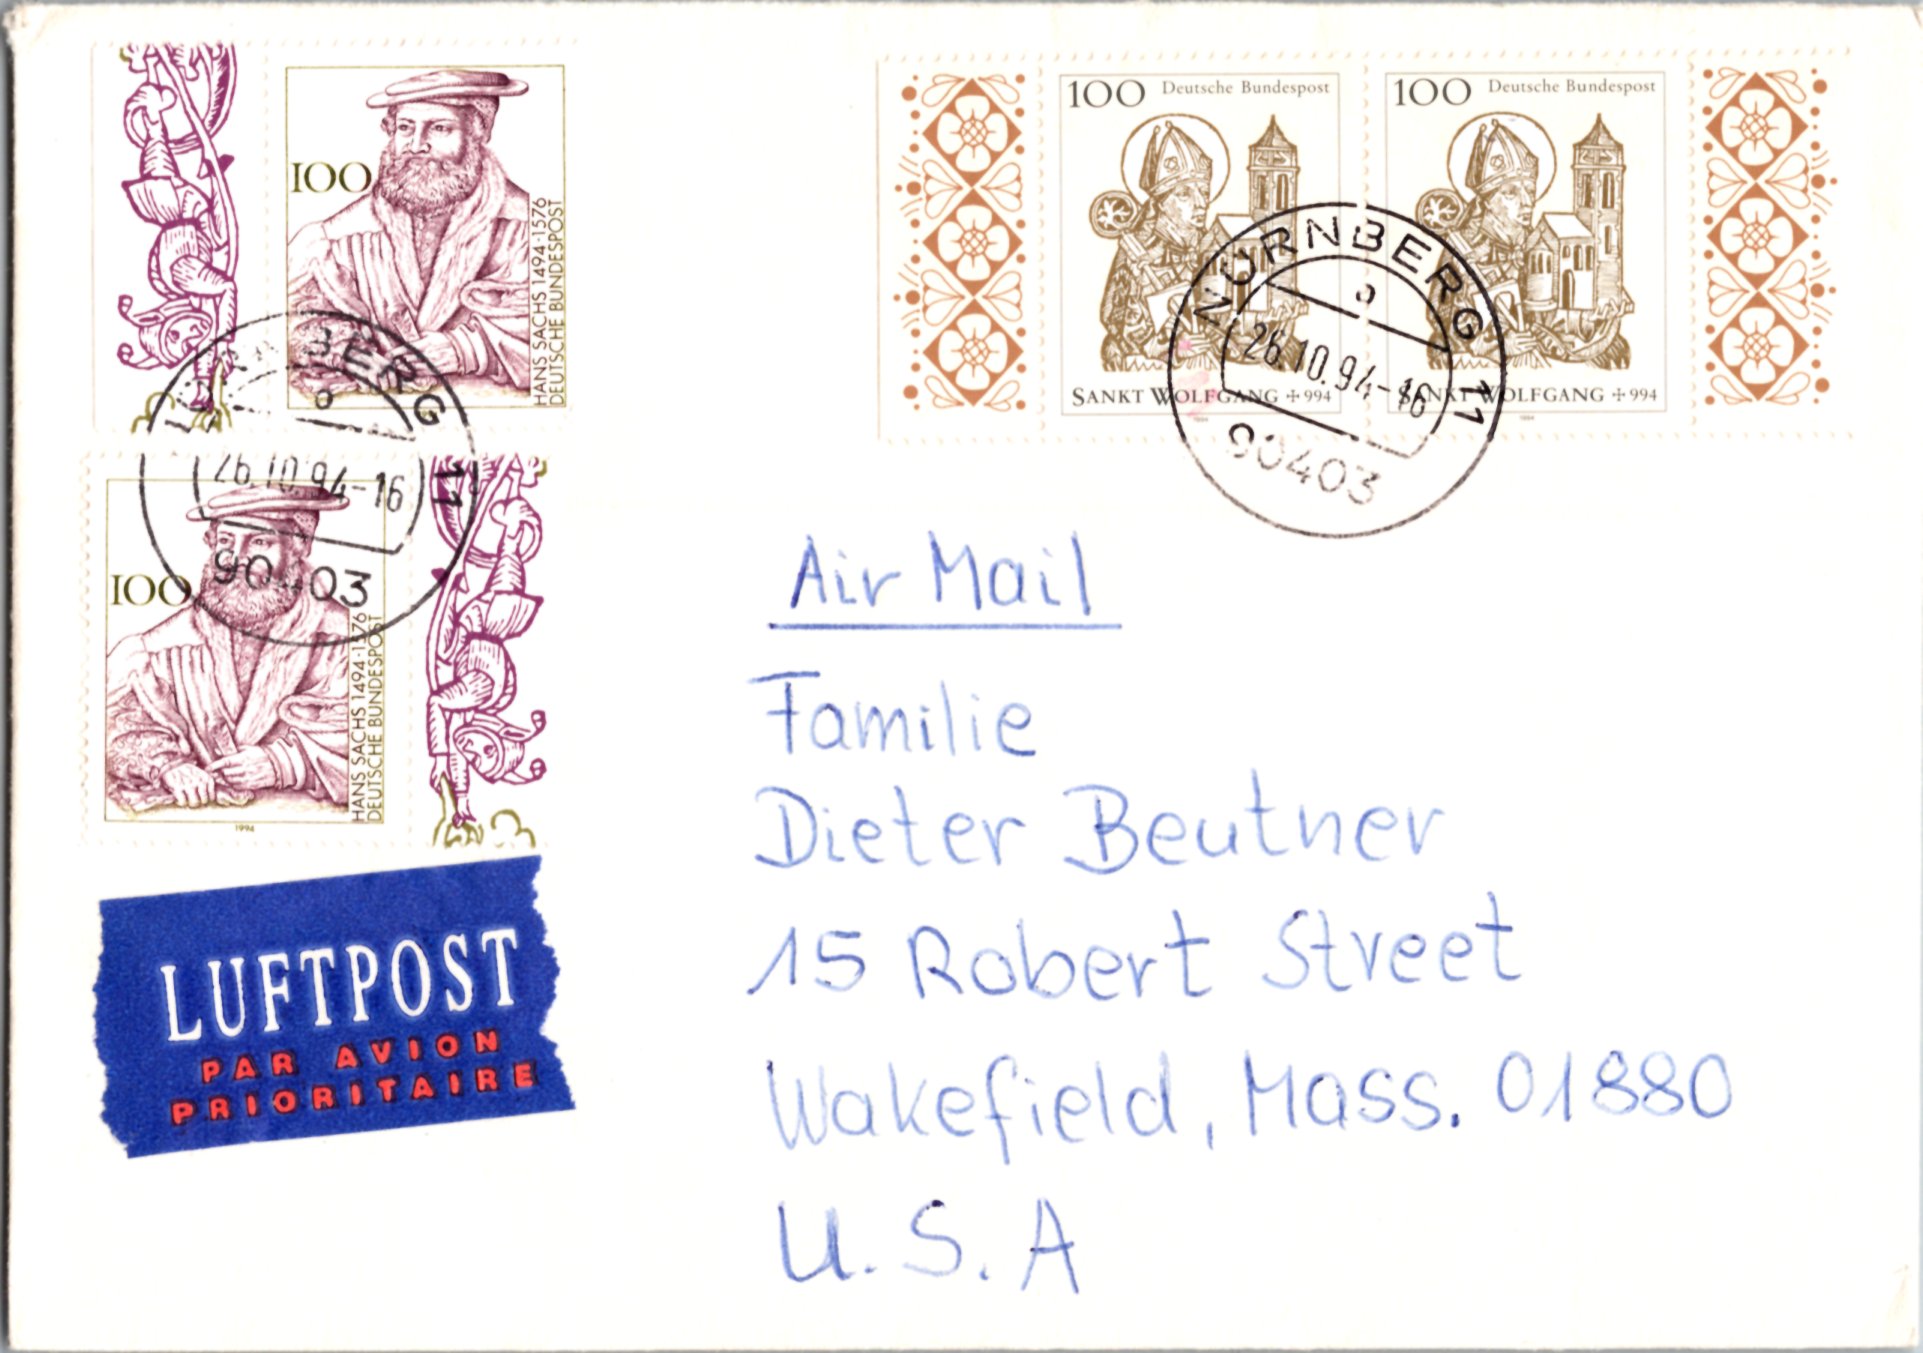 100
HANS SACHS 1494-1576
DEUTSCHE BUNDESPOST
100 Deutsche Bundespost
SANKT WOLFGANG +994
1994
100 Deutsche Bundespost
SANKT WOLFGANG +994
1994
BERG 11
b
26.10.94-16
90403
NÜRNBERG 11
b
26.10.94-16
90403
100
HANS SACHS 1494-1576
DEUTSCHE BUNDESPOST
1994
LUFTPOST
PAR AVION
PRIORITAIRE
Air Mail
Familie
Dieter Beutner
15 Robert Street
Wakefield, Mass. 01880
U.S.A